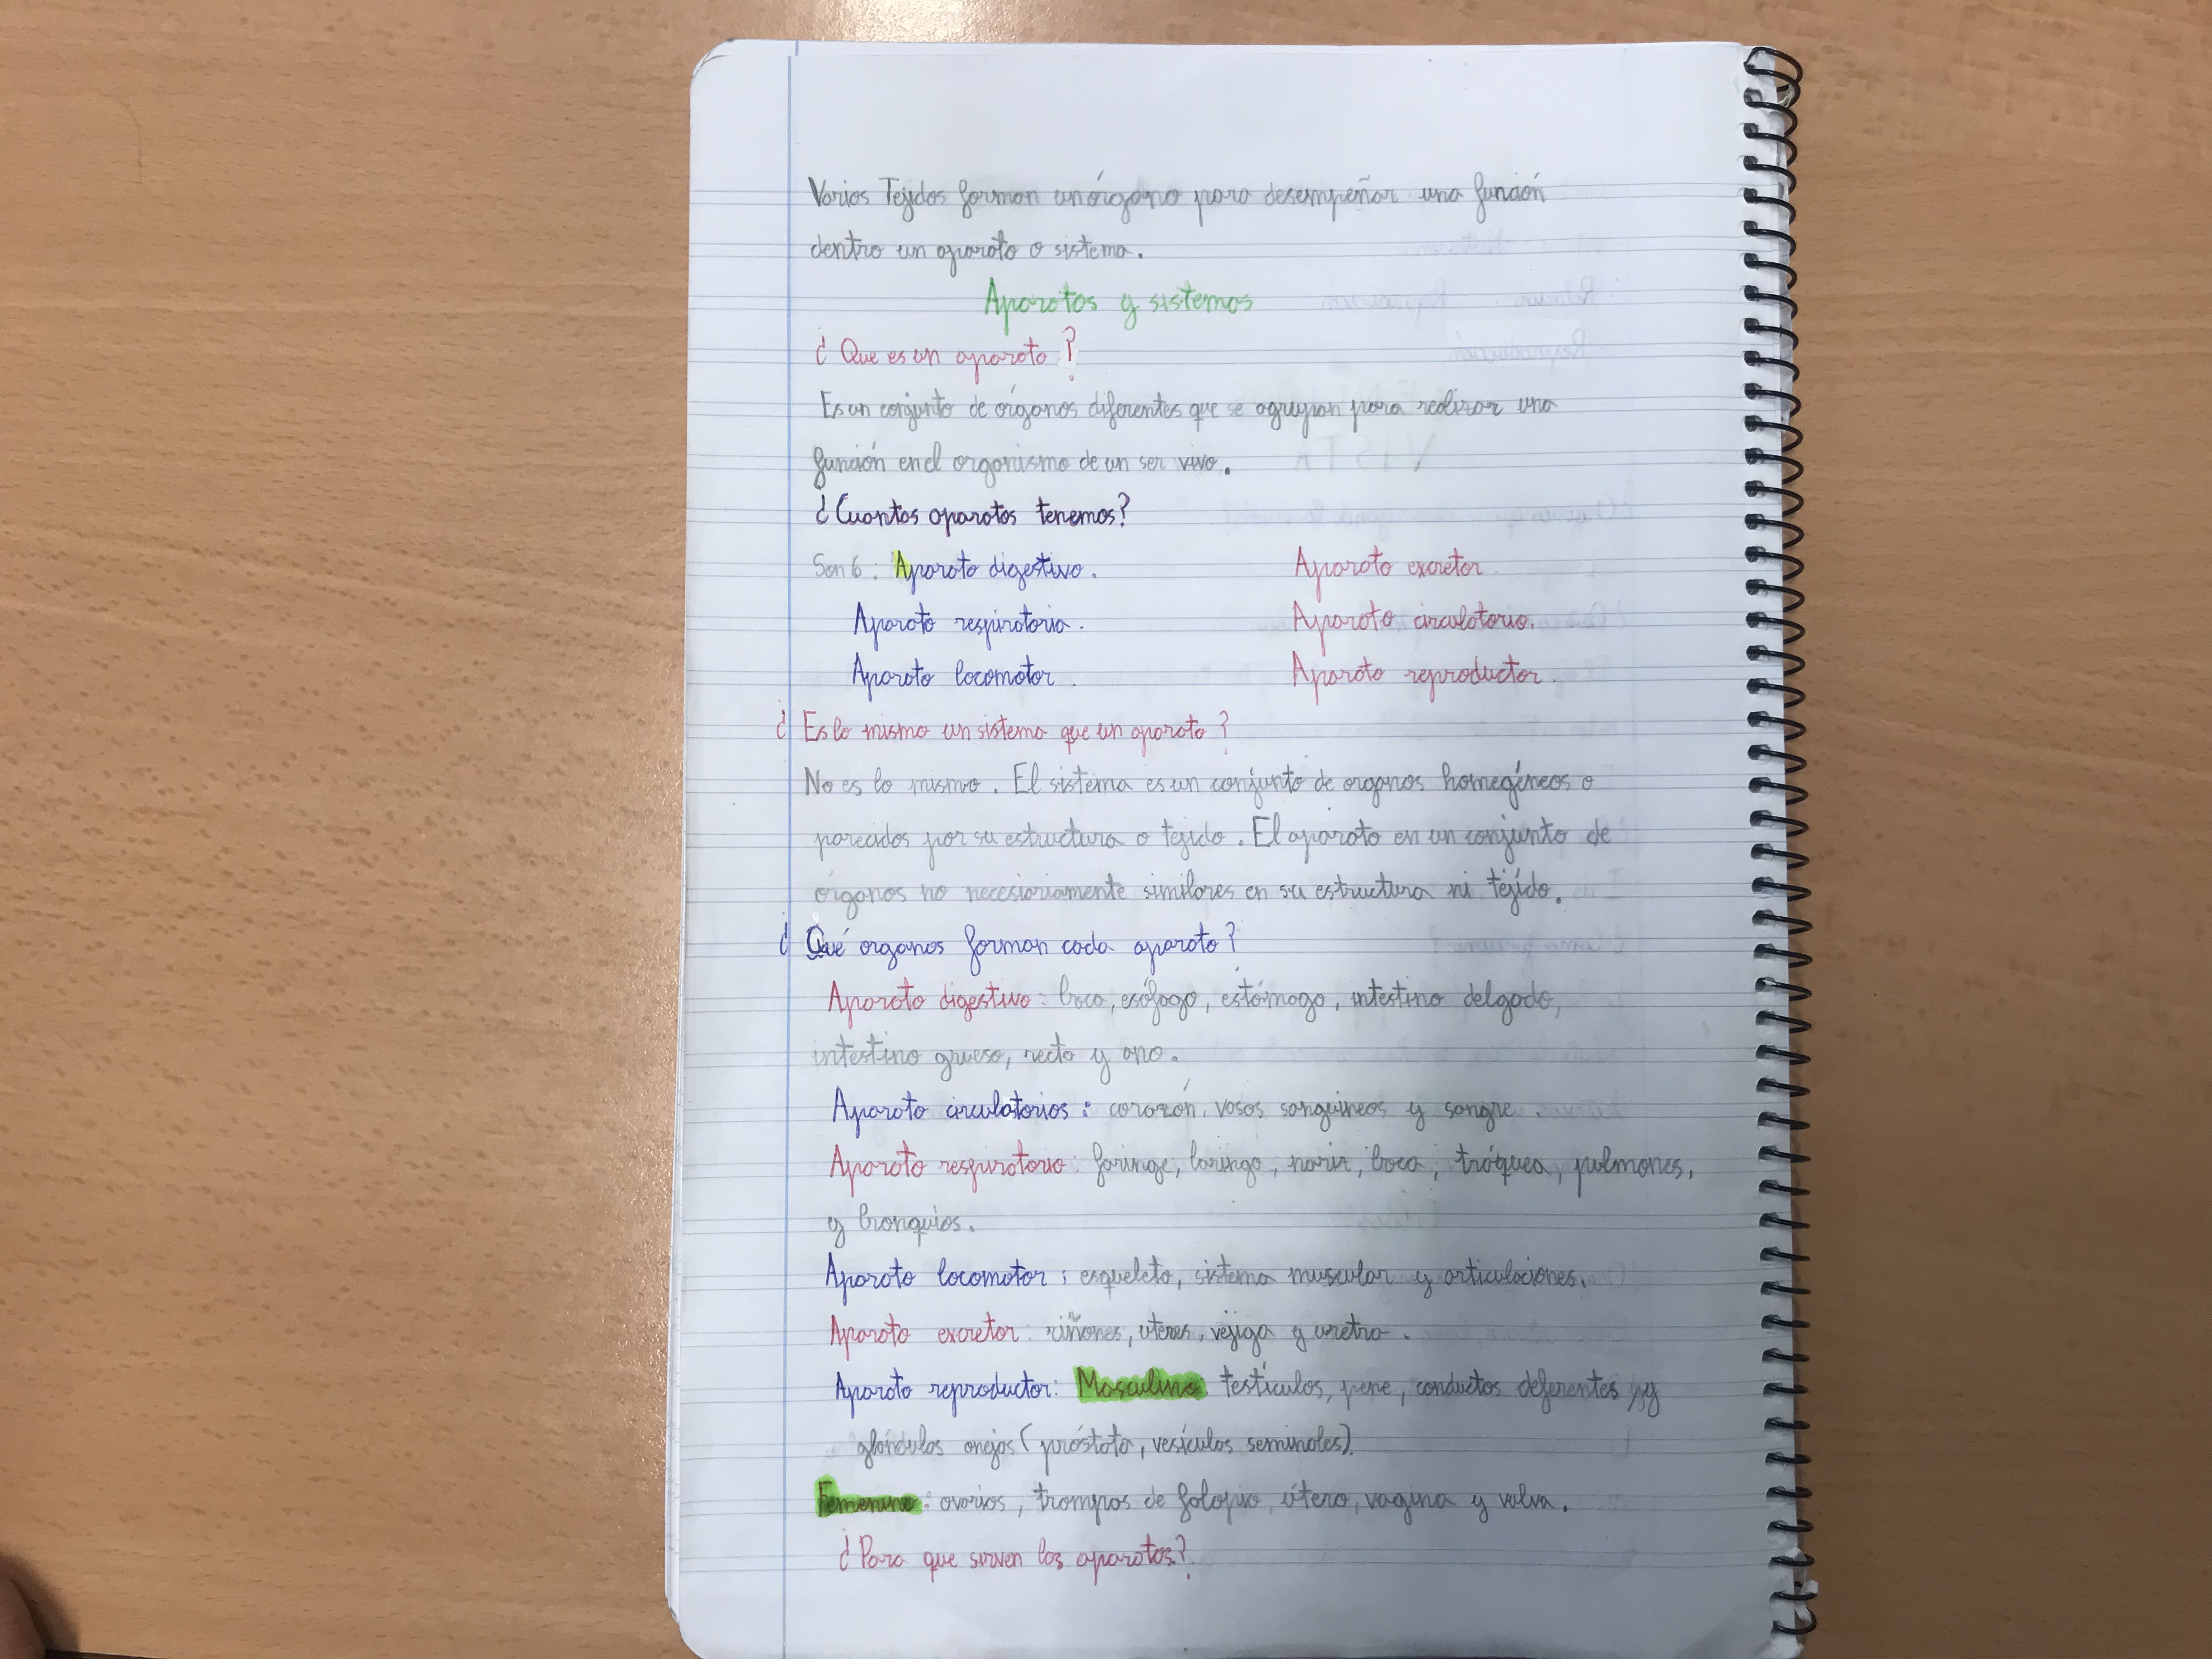 Varios Tejidos forman un órgano para desempeñar una función
dentro un aparato o sistema.
Aparatos y sistemas
¿Que es un aparato?
Es un conjunto de órganos diferentes que se agrupan para realizar una
función en el organismo de un ser vivo.
¿Cuantos aparatos tenemos?
Son 6: Aparato digestivo. Aparato excretor.
Aparato respiratorio. Aparato circulatorio.
Aparato locomotor. Aparato reproductor.
¿Es lo mismo un sistema que un aparato?
No es lo mismo. El sistema es un conjunto de organos homegéneos o
parecidos por su estructura o tejido. El aparato en un conjunto de
órganos no necesiariamente similares en su estructura ni téjido.
¿Qué organos forman cada aparato?
Aparato digestivo: boca, esófago, estómago, intestino delgado,
intestino grueso, recto y ano.
Aparato circulatorios: corazón, vasos sanguineos y sangre.
Aparato respiratorio: faringe, laringe, nariz, boca, tráquea, pulmones,
y bronquios.
Aparato locomotor: esqueleto, sistema muscular y articulaciones.
Aparato excretor: riñones, uteres, vejiga y uretra.
Aparato reproductor: Masculino: testículos, pene, conductos deferentes y
glándulas anejas (próstata, vesículas seminales).
Femenino: ovarios, trompas de falopio, útero, vagina y vulva.
¿Para que sirven los aparatos?